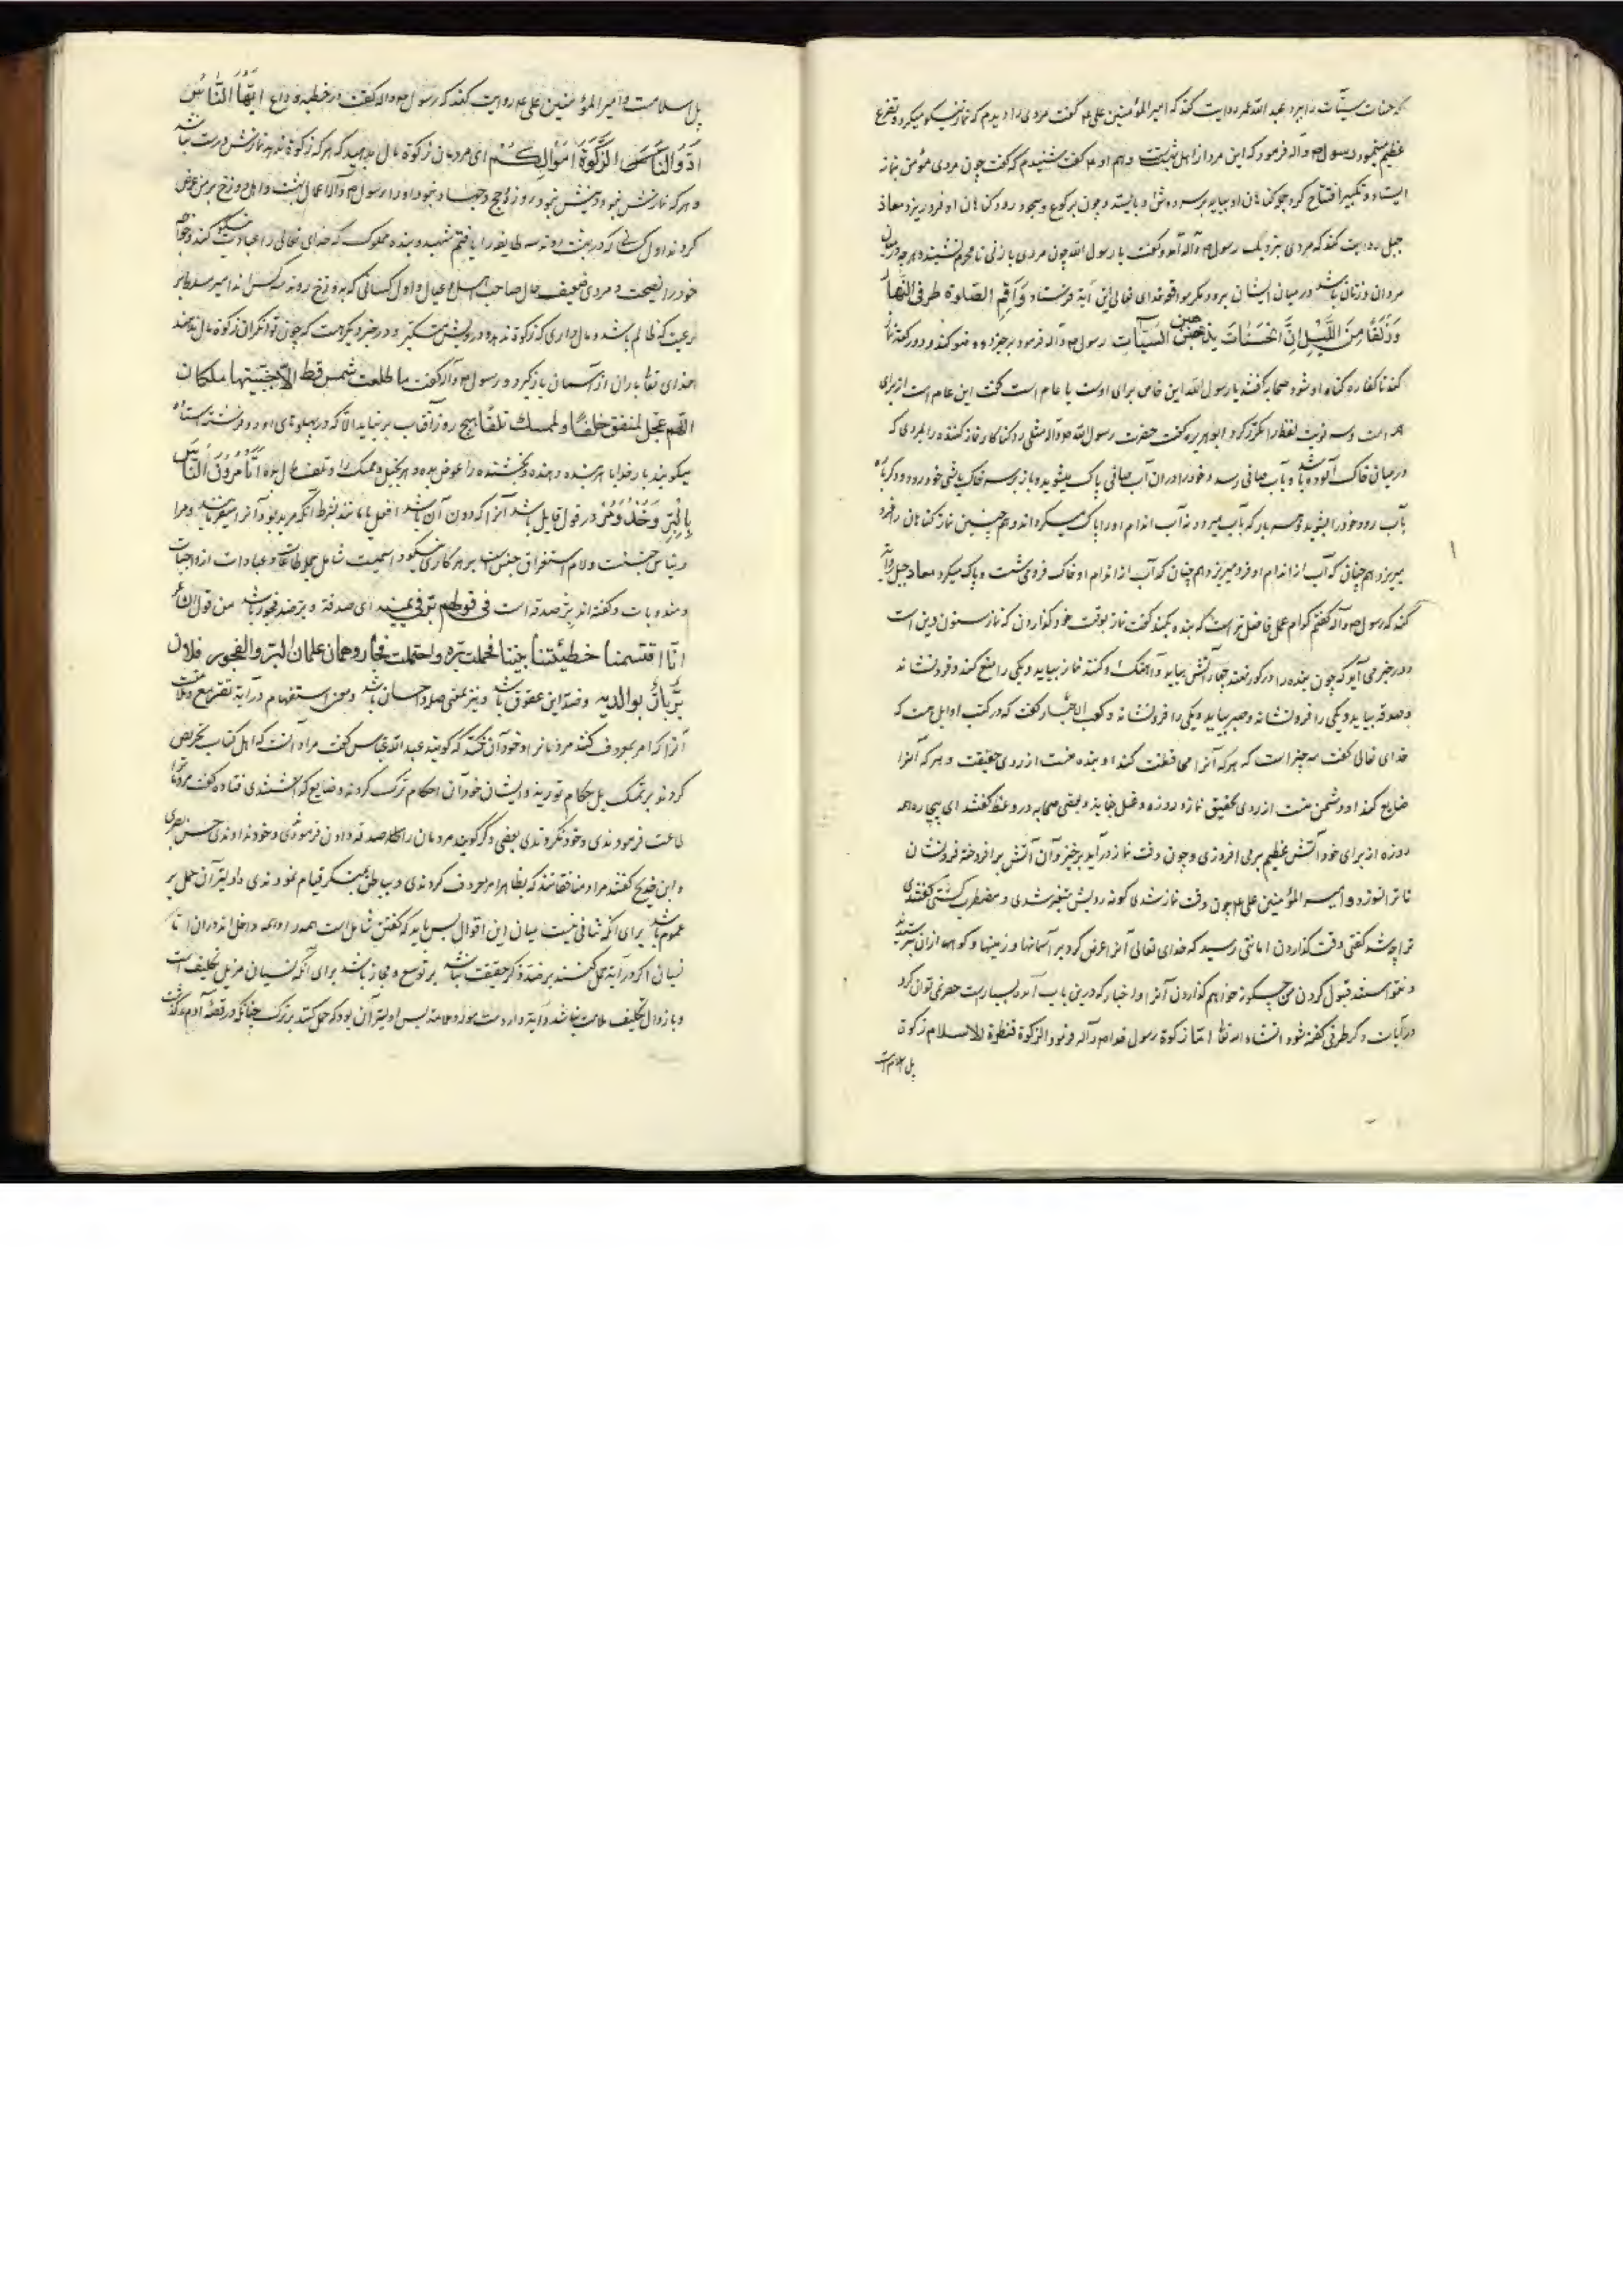 که حسنات سیئات را ببرد عبد الله عمر روایت کند که امیر المؤمنین علی ع گفت مردی را دیدم که نماز نیکو میکرد و تضرع
عظیم مینمود رسول ص و آله فرمود که این مرد از اهل بهشت است و هم او ع گفت شنیدم که گفت چون مردی مؤمن بنماز
ایستاد و تکبیر افتتاح کرد جمله گناهان او بیاید بر سر و دوش او بایستد و چون برکوع و سجود رود گناهان او فرو ریزد و معاذ
جبل روایت کند که مردی بنزدیک رسول ص و آله آمد و گفت یا رسول الله چون مردی با زنی نامحرم بنشیند و هرچه در میان
مردان و زنان باشد در میان ایشان برود مگر مواقعه خدای تعالی این آیة فرستاد وَاَقِمِ الصَّلوةَ طرفی النَّهار
وَزُلَفًا مِنَ اللَّیْلِ اِنَّ الْحَسَنَاتِ یذهبن السیآت رسول ص و آله فرمود برخیز و وضو کن و دو رکعت نماز
کند تا کفاره گناه او شود صحابه گفتند یا رسول الله این خاص برای اوست یا عام است گفت این عام است از برای
همه امت و سه نوبت لفظ را مکرر کرد و ابو هریره گفت حضرت رسول الله ص و آله مثلی زد گناه کار و نماز کننده را بمردی که
در میان خاک آلوده باشد و بآب صافی رسد و خود را در آن آب صافی پاک بشوید و باز بر سر خاک پاشی خود رود و دیگر باره
بآب رود و خود را بشوید و هر بار که بآب میرود نه آب اندام او را پاک میگرداند و هم چنین نماز گناهان را فرو
میریزد هم چنان که آب از اندام او فرو میریزد و هم چنان که آب از اندام او خاک فروی شست و پاک میکرد معاذ جبل روایة
کند که رسول ص و آله را گفتم کدام عمل فاضل تر است که بنده بکند گفت نماز بوقت خود گذاردن که نماز ستون دین است
و در خبر می آید که چون بنده را در گور نهند چهار آتش بیاید و آهنگ او کند نماز بیاید و یکی را منع کند و فرو نشاند
و صدقه بیاید و یکی را فرو نشاند و صبر بیاید و یکی را فرو نشاند و کعب الاحبار گفت که در کتب اوایل هست که
خدای تعالی گفت سه چیز است که هر که آنرا محافظت کند او بنده منست از روی حقیقت و هر که آنرا
ضایع کند او دشمن منست از روی تحقیق نماز و روزه و غسل جنابة و بعضی صحابه در وعظ گفتند ای بیچاره همه
روزه از برای خود آتش عظیم بر می افروزی و چون وقت نماز در آید برخیز و آن آتش برافروخته فرو نشان
تا ترا نسوزد و امیر المؤمنین علی ع چون وقت نماز شدی گونه رویش متغیر شدی و مضطرب گشتی گفتندی
ترا چه شد گفتی وقت گذاردن امانتی رسید که خدای تعالی آنرا عرض کرد بر آسمانها و زمینها و کوهها از آن بترسیدند
و نتوانستند قبول کردن من چگونه خواهم گذاردن آنرا و اخبار که درین باب آمده بسیارست حصر نمی توان کرد
در آیات دگر طرفی گفته شود انشاء الله تعا امّا زکوة رسول خدا ص و آله فرمود الزکوة قنطرة الاسلام زکوة
پل اسلام است
پل اسلامست و امیر المؤمنین علی ع روایت کند که رسول ص و آله گفت در خطبه وداع ایُّهَا النَّاسُ
اَدُّوا الزَّکوةَ اَمْوَالِکُمْ ای مردمان زکوة مال بدهید که هر که زکوة ندهد نمازش درست نباشد
و هر که نمازش نبود دینش نبود و روزه و حج و جهاد نبود او را و رسول ص و آله اعمال بهشت و اهل دوزخ بر من عرض
کردند اول کسانی که در بهشت روند سه طایفه را یافتم شهید و بنده مملوک که خدای تعالی را عبادت نیکو کند و خواجه
خود را نصیحت و مردی ضعیف حال صاحب اسلام و عیال و اول کسانی که به دوزخ روند سه کس اند امیر مسلط بر
رعیت که ظالم باشد و مال داری که زکوة ندهد و درویش متکبر و در خبر دیگر هست که چون توانگران زکوة مال ندهند
خدای تعا باران از آسمان باز گیرد و رسول ص و آله گفت ما طلعت شمس قط الا بجنبتیها ملکان
اللهم عجل لمنفق خلفًا و لممسک تلفًا هیچ روز آفتاب بر نیاید الا که در پهلوهای او دو فرشته ایستاده
میگویند بار خدایا هر بنده دهنده و بخشنده را عوض بده و هر بخیل و ممسک را و تلف مال بده اَتَأمُرُونَ النَّاسَ
بِالْبِرِّ
و مندوبات و گفته اند بِر صدقه است فی قولهم برّ فی یمینه ای صدقة و بِر ضد فجور باشد من قول الشاعر
انّا اقتسمنا خطیئتنا بیننا فحملت برّه واحتملت فجار وهمان علمان البر والفجور فلان
برّ بارّ بوالدیه و ضد این عقوق باشد و بِر بمعنی صله و احسان باشد و معنی استفهام در آیه تقریع و ملامت
آنرا که امر بمعروف کنند مردمان را و خود آن نکنند که گویند عبد الله عباس گفت مراد آنست که اهل کتاب تحریض
کردند بر تمسک باحکام توریة و ایشان خود آن احکام ترک کردند و ضایع گذاشتندی قتاده گفت مردم را
طاعت فرمودندی و خود نکردندی بعضی دگر گویند مردمان را بصدقه دادن فرمودندی و خود ندادندی حسن بصری
و ابن جریح گفتند مراد منافقانند که بظاهر امر بمعروف کردندی و بباطن بمنکر قیام نمودندی و اولیتر آن حمل بر
عموم باشد برای آنکه تنافی نیست میان این اقوال پس باید که گفتن شامل است همه را و همه داخل اند در آن امّا
نسیان اگر در آیة حمل کنند بر ضد ذکر حقیقت نباشد بر توسع و مجاز باشد برای آنکه نسیان مزیل تکلیف است
و با زوال تکلیف ملامت نباشد و آیة وارد است مورد ملامة پس اولیتر آن بود که حمل کنند بر ترک چنانکه در قصه آدم ع گذشت